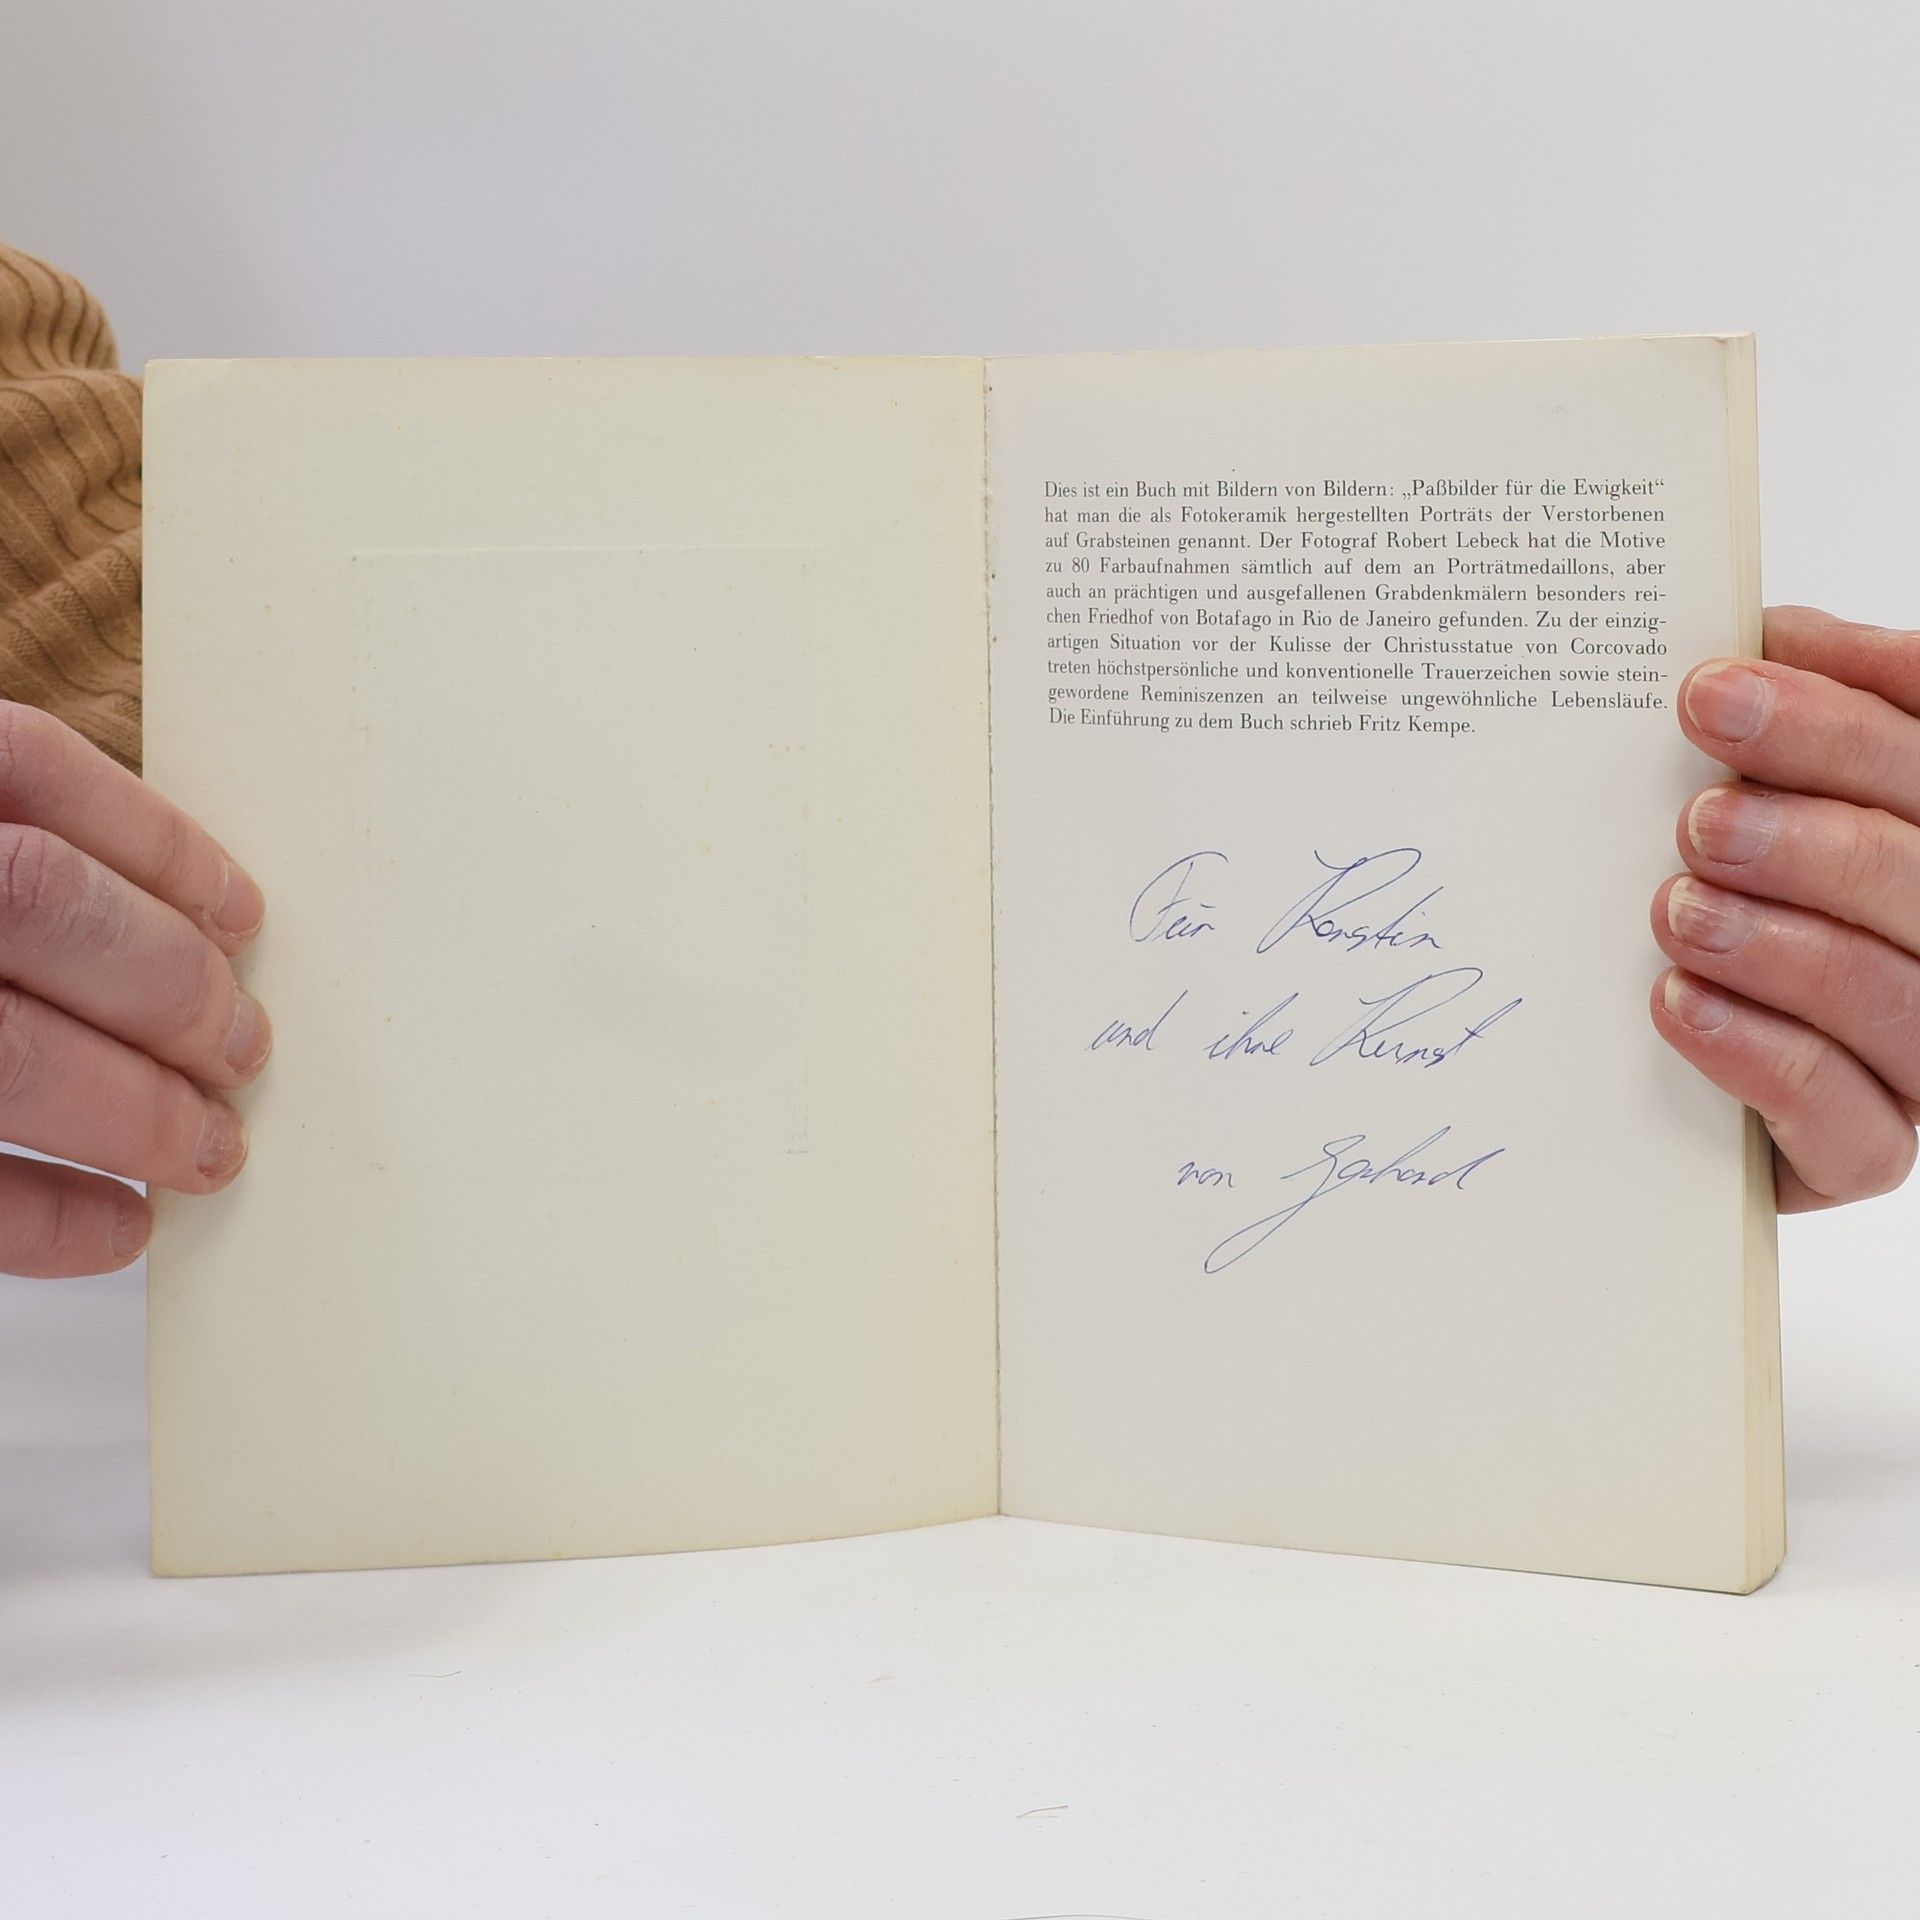 Dies ist ein Buch mit Bildern von Bildern: „Paßbilder für die Ewigkeit“
hat man die als Fotokeramik hergestellten Porträts der Verstorbenen
auf Grabsteinen genannt. Der Fotograf Robert Lebeck hat die Motive
zu 80 Farbaufnahmen sämtlich auf dem an Porträtmedaillons, aber
auch an prächtigen und ausgefallenen Grabdenkmälern besonders rei-
chen Friedhof von Botafago in Rio de Janeiro gefunden. Zu der einzig-
artigen Situation vor der Kulisse der Christusstatue von Corcovado
treten höchstpersönliche und konventionelle Trauerzeichen sowie stein-
gewordene Reminiszenzen an teilweise ungewöhnliche Lebensläufe.
Die Einführung zu dem Buch schrieb Fritz Kempe.
Für Kerstin
und ihre Kunst
von